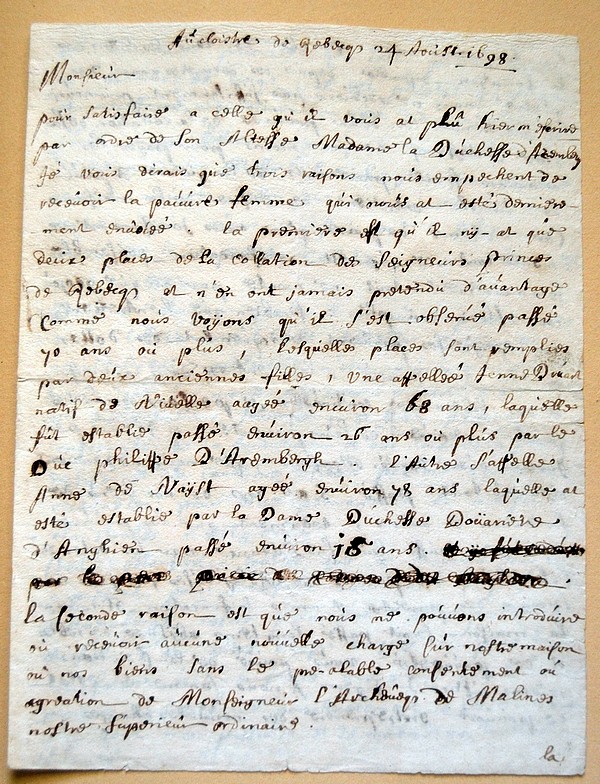 Au cloistre de Rebecq 24 Aoust 1698.
Monsieur
pour satisfaire a celle qu'il vous at plû hier m'éscrire
par ordre de son Altesse Madame la Duchesse d'Aremberg
Jé vous dirais que trois raisons nous empechent de
recevoir la pauure femme qui nous at esté derniere
ment enuoiée. la premiere est qu'il ny-at que
deux places de la collation des seigneurs princes
de Rebecq et n'en ont jamais pretendu d'auantage
Comme nous voÿons qu'il s'est obserué passé
70 ans où plus, lesquelles places sont remplies
par deux anciennes filles, une appellée Jenne
natif de Niuelle aagée enuiron 68 ans, laquelle
fut establie passé enuiron 26 ans où plus par le
Duc philippe D'Arembergh. l'Autre s'appelle
Anne de Naÿst agée enuiron 78 ans laquelle at
esté establie par la Dame Duchesse Doüariere
d'Anghien passé enuiron 18 ans.
la seconde raison est que nous ne pouuons introduire
où recevoir aucune nouuelle charge sur nostre maison
où nos biens sans le pre-alable consentement où
agreation de Monseigneur l'Archeuesq de Malines
nostre superieur ordinaire.
la